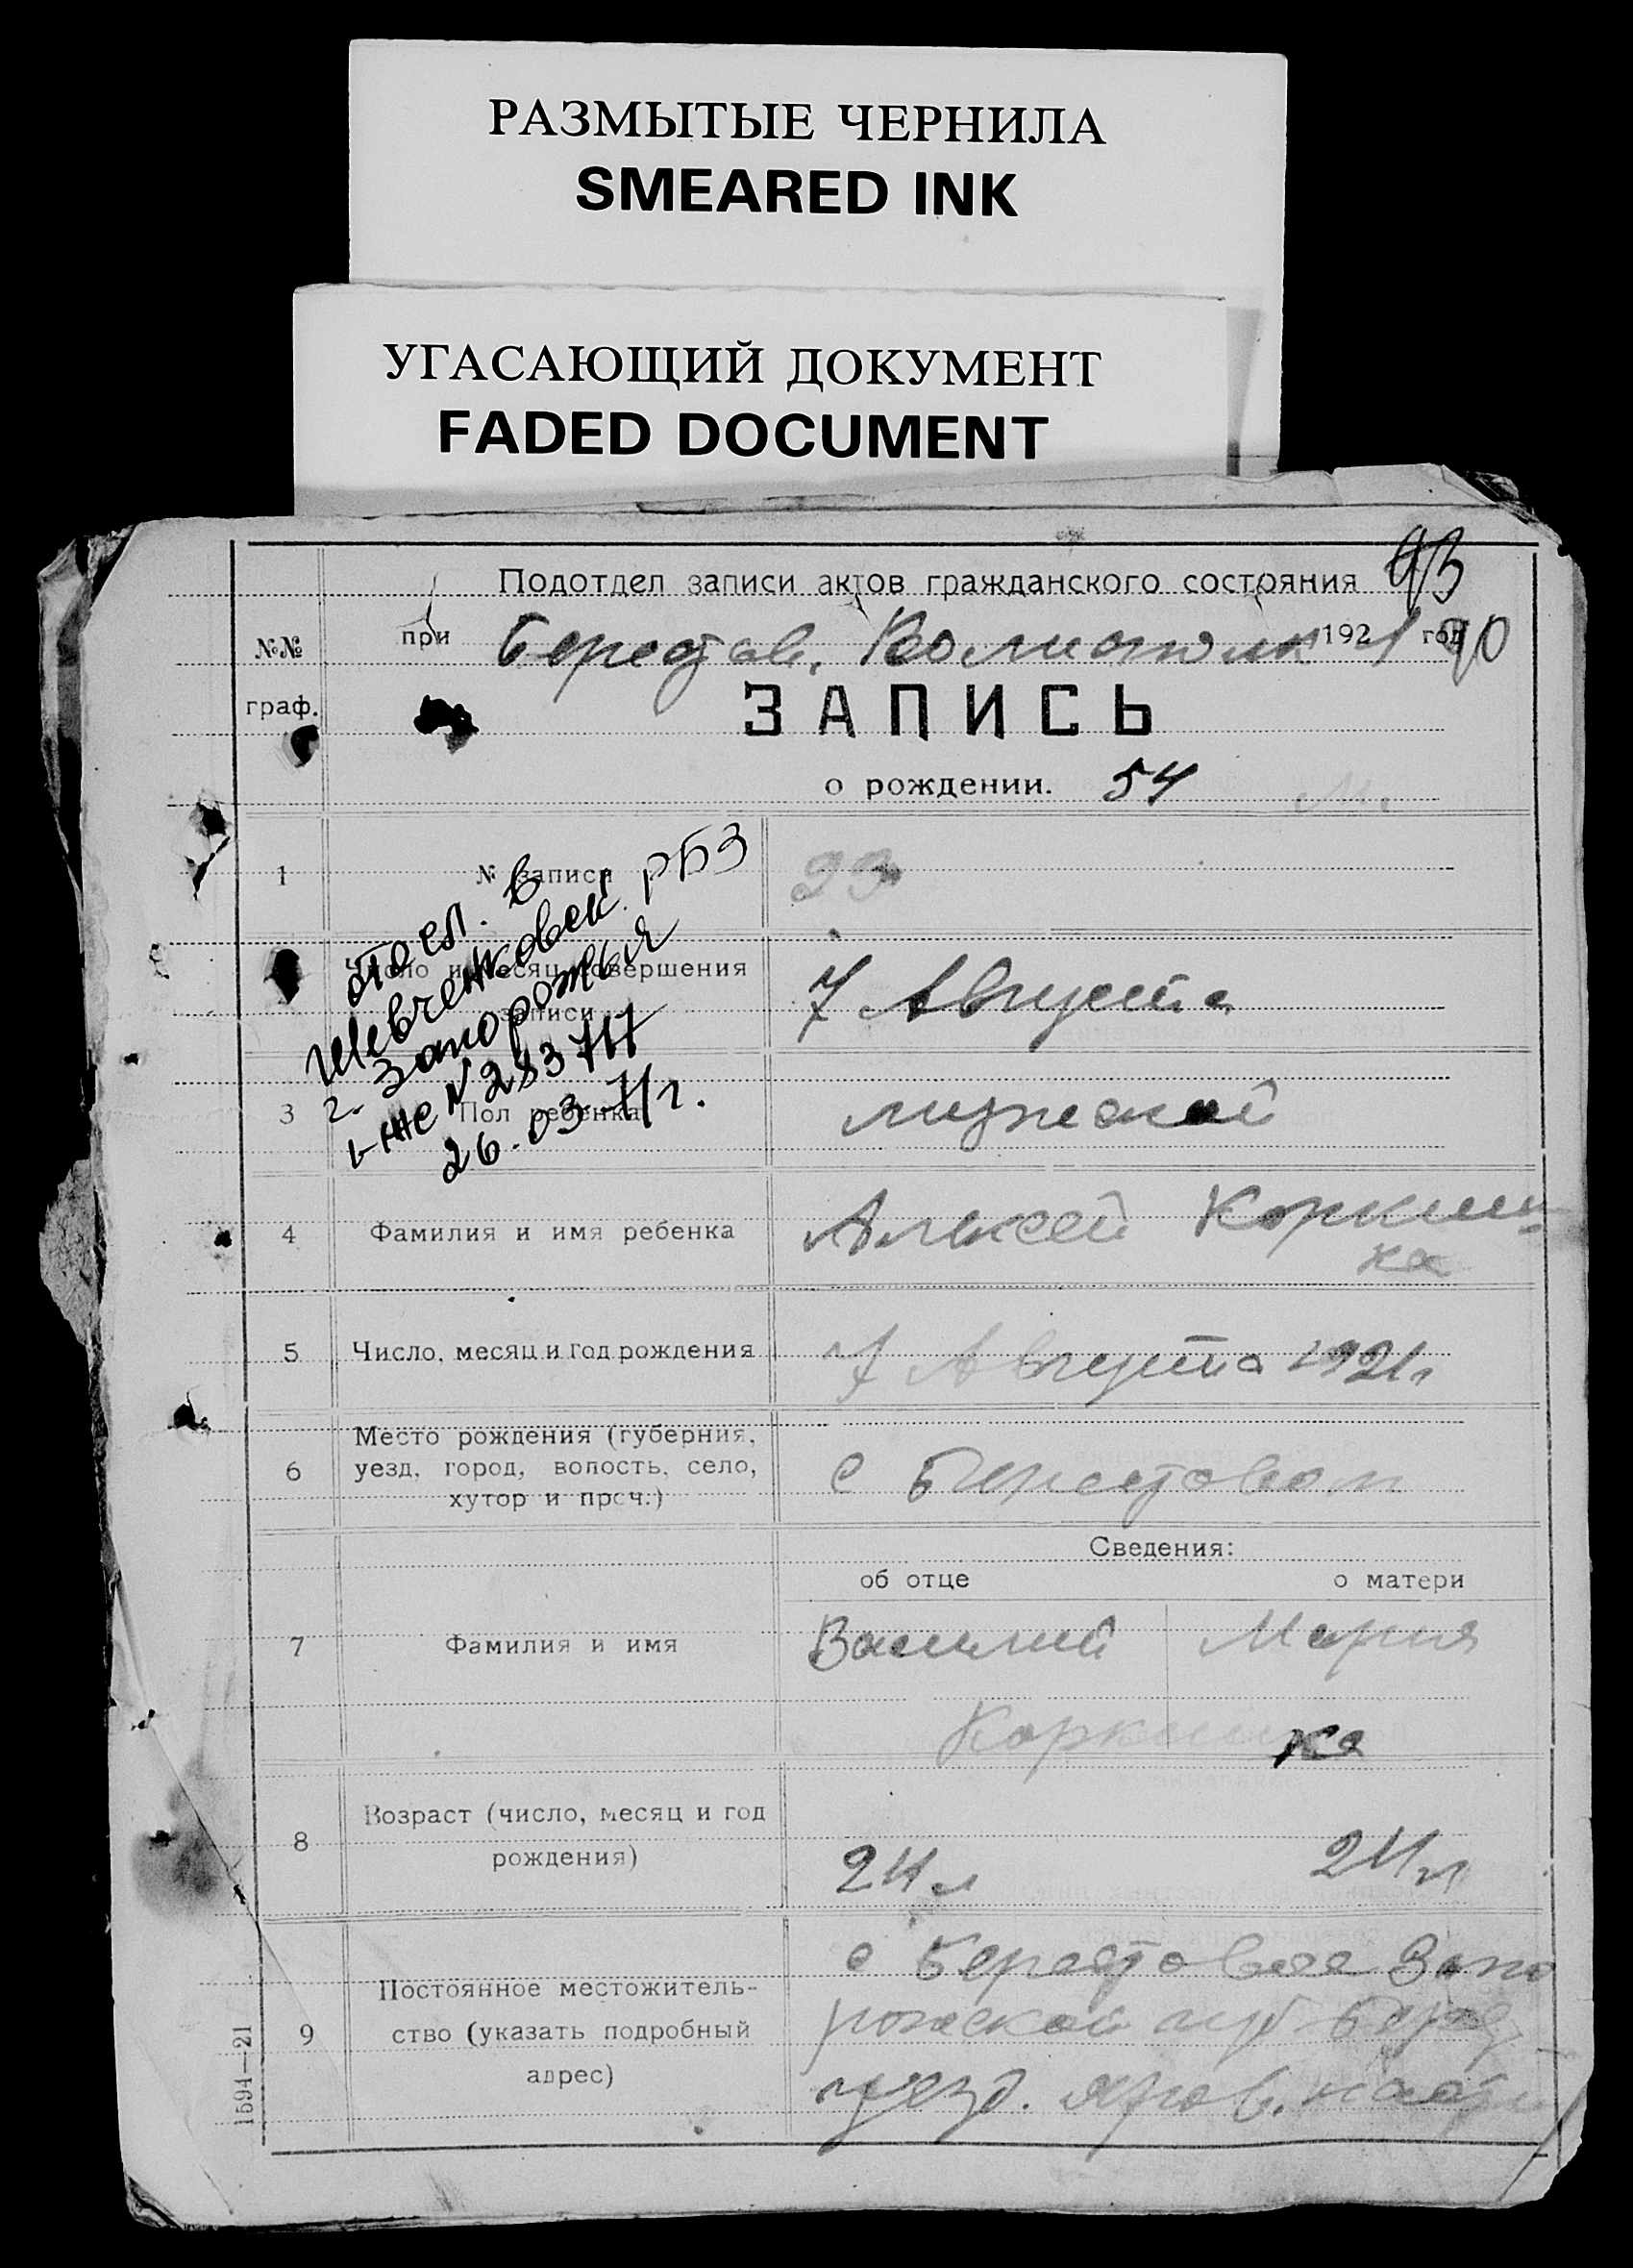 РАЗМЫТЫЕ ЧЕРНИЛА
SMEARED INK
УГАСАЮЩИЙ ДОКУМЕНТ
FADED DOCUMENT
Подотдел записи актов гражданского состояния 93
№№ при Берестов. 1921 год 90
граф. ЗАПИСЬ
о рождении. 54
1 № записи
отосл. в
Шевченковск. РБЗ
г. Запорожья
1-ЖС № 283717
26.03.71г.
Число и месяц совершения записи 7 Августа
3 Пол ребенка мужской
4 Фамилия и имя ребенка Алексей Коркиш-
ка
5 Число, месяц и год рождения 7 Августа 1921г
6 Место рождения (губерния,
уезд, город, волость, село,
хутор и проч.)
с Берестовом
Сведения:
об отце о матери
7 Фамилия и имя Василий Мария
Коркишка
8 Возраст (число, месяц и год
рождения)
24л 24л
9 Постоянное местожитель-
ство (указать подробный
адрес)
с Берестовое Запо
рожской губ
уезд.
1594—21